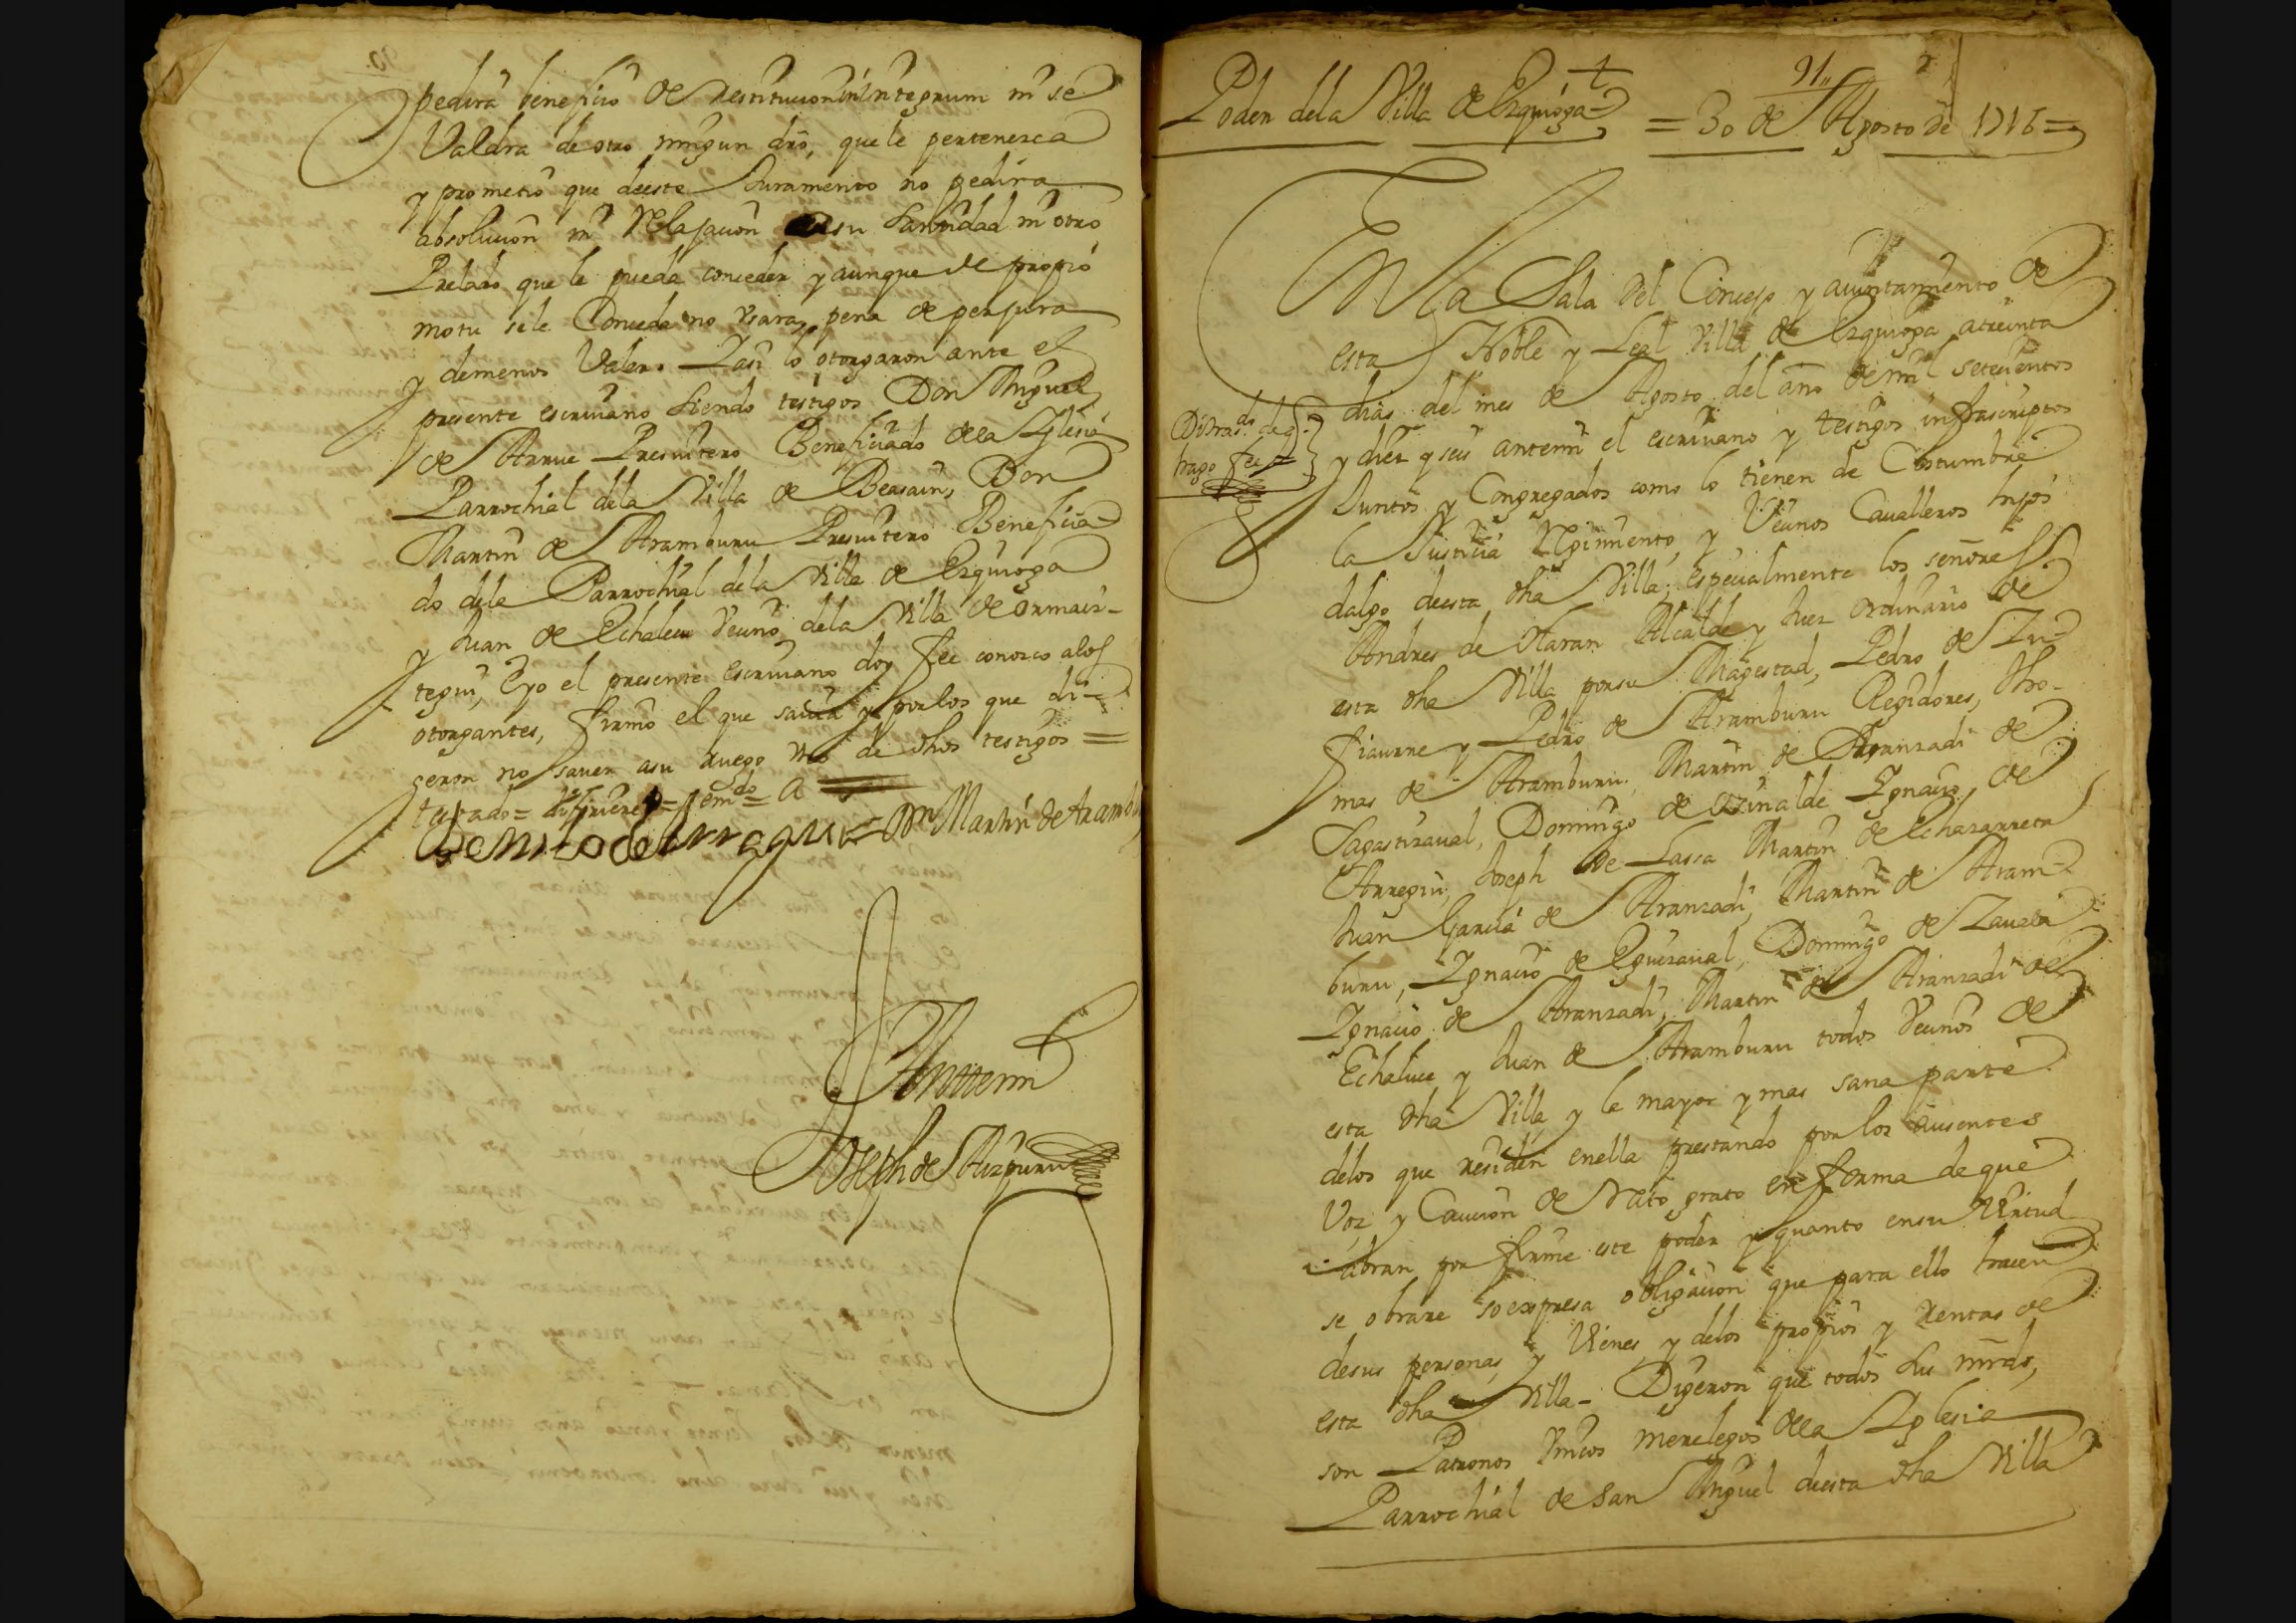 pedira beneficio de restitucion in integrum ni se
Valdra de otro ningun dro, que le pertenezca
y prometio que deeste Juramento no pedira
absolucion ni Relajacion a su Santidad ni otro
Prelado que le pueda conceder y aunque de propio
motu sele Conceda no vsara, pena de perjura
y demenos Valer. Yasi lo otorgaron ante el
presente escriuano siendo testigos Don Miguel
de Arrue Presuitero Beneficiado dela Yglesia
Parrochial dela Villa de Beasain, Don
Martin de Aramburu Presuitero Beneficia-
do dela Parrochial dela Villa de Ezquioga
y Juan de Echalecu Vecino dela Villa de Ormaiz-
tegui, E yo el presente escriuano doy fee conozco alos
otorgantes, firmo el que sauia y por los que di-
geron no sauer asu ruego vno de dhos testigos =
testado = = emdo = a
Benito de Arregui = Dn Martin de Aramb
Anttemi
Joseph de Aizpuru
91
Poder dela Villa de Ezquioga = 30 de Agosto de 1716 =
En la Sala del Concejo y auuntamiento de
esta Noble y Leal Villa de Ezquioga atreinta
dias del mes de Agosto del año de mil setecientos
y diez y seis antemi el escriuano y testigos infrascriptos
Juntos y Congregados como lo tienen de Costumbre
la Justicia Rejimiento, y Vecinos Caualleros hijos
dalgo deesta dha Villa, especialmente los señores
Andres de Haran Alcalde y Juez Ordinario de
esta dha Villa por su Magestad, Pedro de Zu-
fiaurre y Pedro de Aramburu Regidores, Tho-
mas de Aramburu, Martin de Aranzadi de
Sagastizaual, Domingo de Ozinalde Ygnacio de
Arregui, Joseph de Lassa Martin de Echazarreta
Juan Garcia de Aranzadi, Martin de Aram-
buru, Ygnacio de Eguizaual, Domingo de Zauala
Ygnacio de Aranzadi, Martin de Aranzadi de
Echaluce y Juan de Aramburu todos Vecinos de
esta dha Villa, y la mayor y mas sana parte
delos que residen enella prestando por los ausentes
Voz y Caucion de rato grato en forma de que
abran por firme este poder y quanto ensu Virtud
se obrare so expresa obligacion que para ello hacen
desus personas, y Vienes, y delos propios y rentas de
esta dha Villa - Digeron que todos sus mrds,
son Patronos Vnicos merelegos dela Yglesia
Parrochial de San Miguel deesta dha Villa